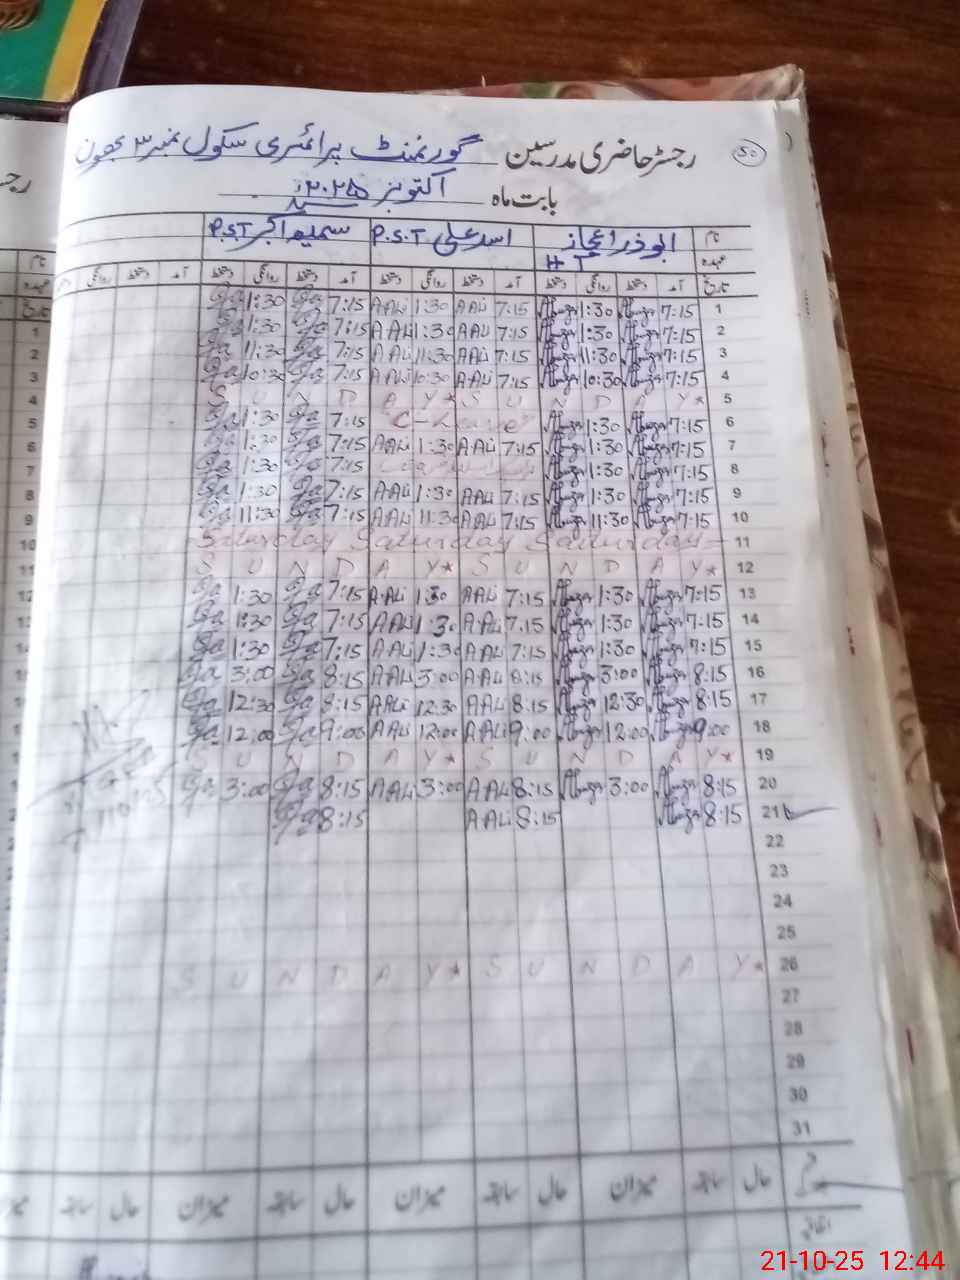 رجسٹر حاضری مدرسین گورنمنٹ پرائمری سکول نمبر ۳ بھون
50
بابت ماہ اکتوبر ۲۰۲۵
نام ابوذر اعجاز اسد علی P.S.T سمیعہ اکبر P.S.T
عہدہ H T
تاریخ آمد دستخط روانگی دستخط آمد دستخط روانگی دستخط آمد دستخط روانگی دستخط آمد دستخط روانگی
1 7:15 Abuzar 1:30 Abuzar 7:15 A ALi 1:30 A ALi 7:15 1:30
2 7:15 Abuzar 1:30 Abuzar 7:15 A ALi 1:30 A ALi 7:15 1:30
3 7:15 Abuzar 11:30 Abuzar 7:15 A ALi 11:30 A ALi 7:15 11:30
4 7:15 Abuzar 10:30 Abuzar 7:15 A ALi 10:30 A ALi 7:15 10:30
S U N D A Y * S U N D A Y * 5
6 7:15 Abuzar 1:30 Abuzar C-Leave 7:15 1:30
7 7:15 Abuzar 1:30 Abuzar 7:15 A ALi 1:30 A ALi 7:15 1:30
8 7:15 Abuzar 1:30 Abuzar 7:15 1:30
9 7:15 Abuzar 1:30 Abuzar 7:15 A ALi 1:30 A ALi 7:15 1:30
10 7:15 Abuzar 11:30 Abuzar 7:15 A ALi 11:30 A ALi 7:15 11:30
Saturday Saturday Saturday 11
S U N D A Y * S U N D A Y * 12
13 7:15 Abuzar 1:30 Abuzar 7:15 A ALi 1:30 A ALi 7:15 1:30
14 7:15 Abuzar 1:30 Abuzar 7:15 A ALi 1:30 A ALi 7:15 1:30
15 7:15 Abuzar 1:30 Abuzar 7:15 A ALi 1:30 A ALi 7:15 1:30
16 8:15 Abuzar 3:00 Abuzar 8:15 A ALi 3:00 A ALi 8:15 3:00
17 8:15 Abuzar 12:30 Abuzar 8:15 A ALi 12:30 A ALi 8:15 12:30
18 9:00 Abuzar 12:00 Abuzar 9:00 A ALi 12:00 A ALi 9:00 12:00
S U N D A Y * S U N D A Y * 19
20 8:15 Abuzar 3:00 Abuzar 8:15 A ALi 3:00 A ALi 8:15 3:00
21 8:15 Abuzar 8:15 A ALi 8:15
22
23
24
25
S U N D A Y * S U N D A Y * 26
27
28
29
30
31
حال سابقہ میزان حال سابقہ میزان حال سابقہ میزان حال سابقہ میزان
21-10-25 12:44